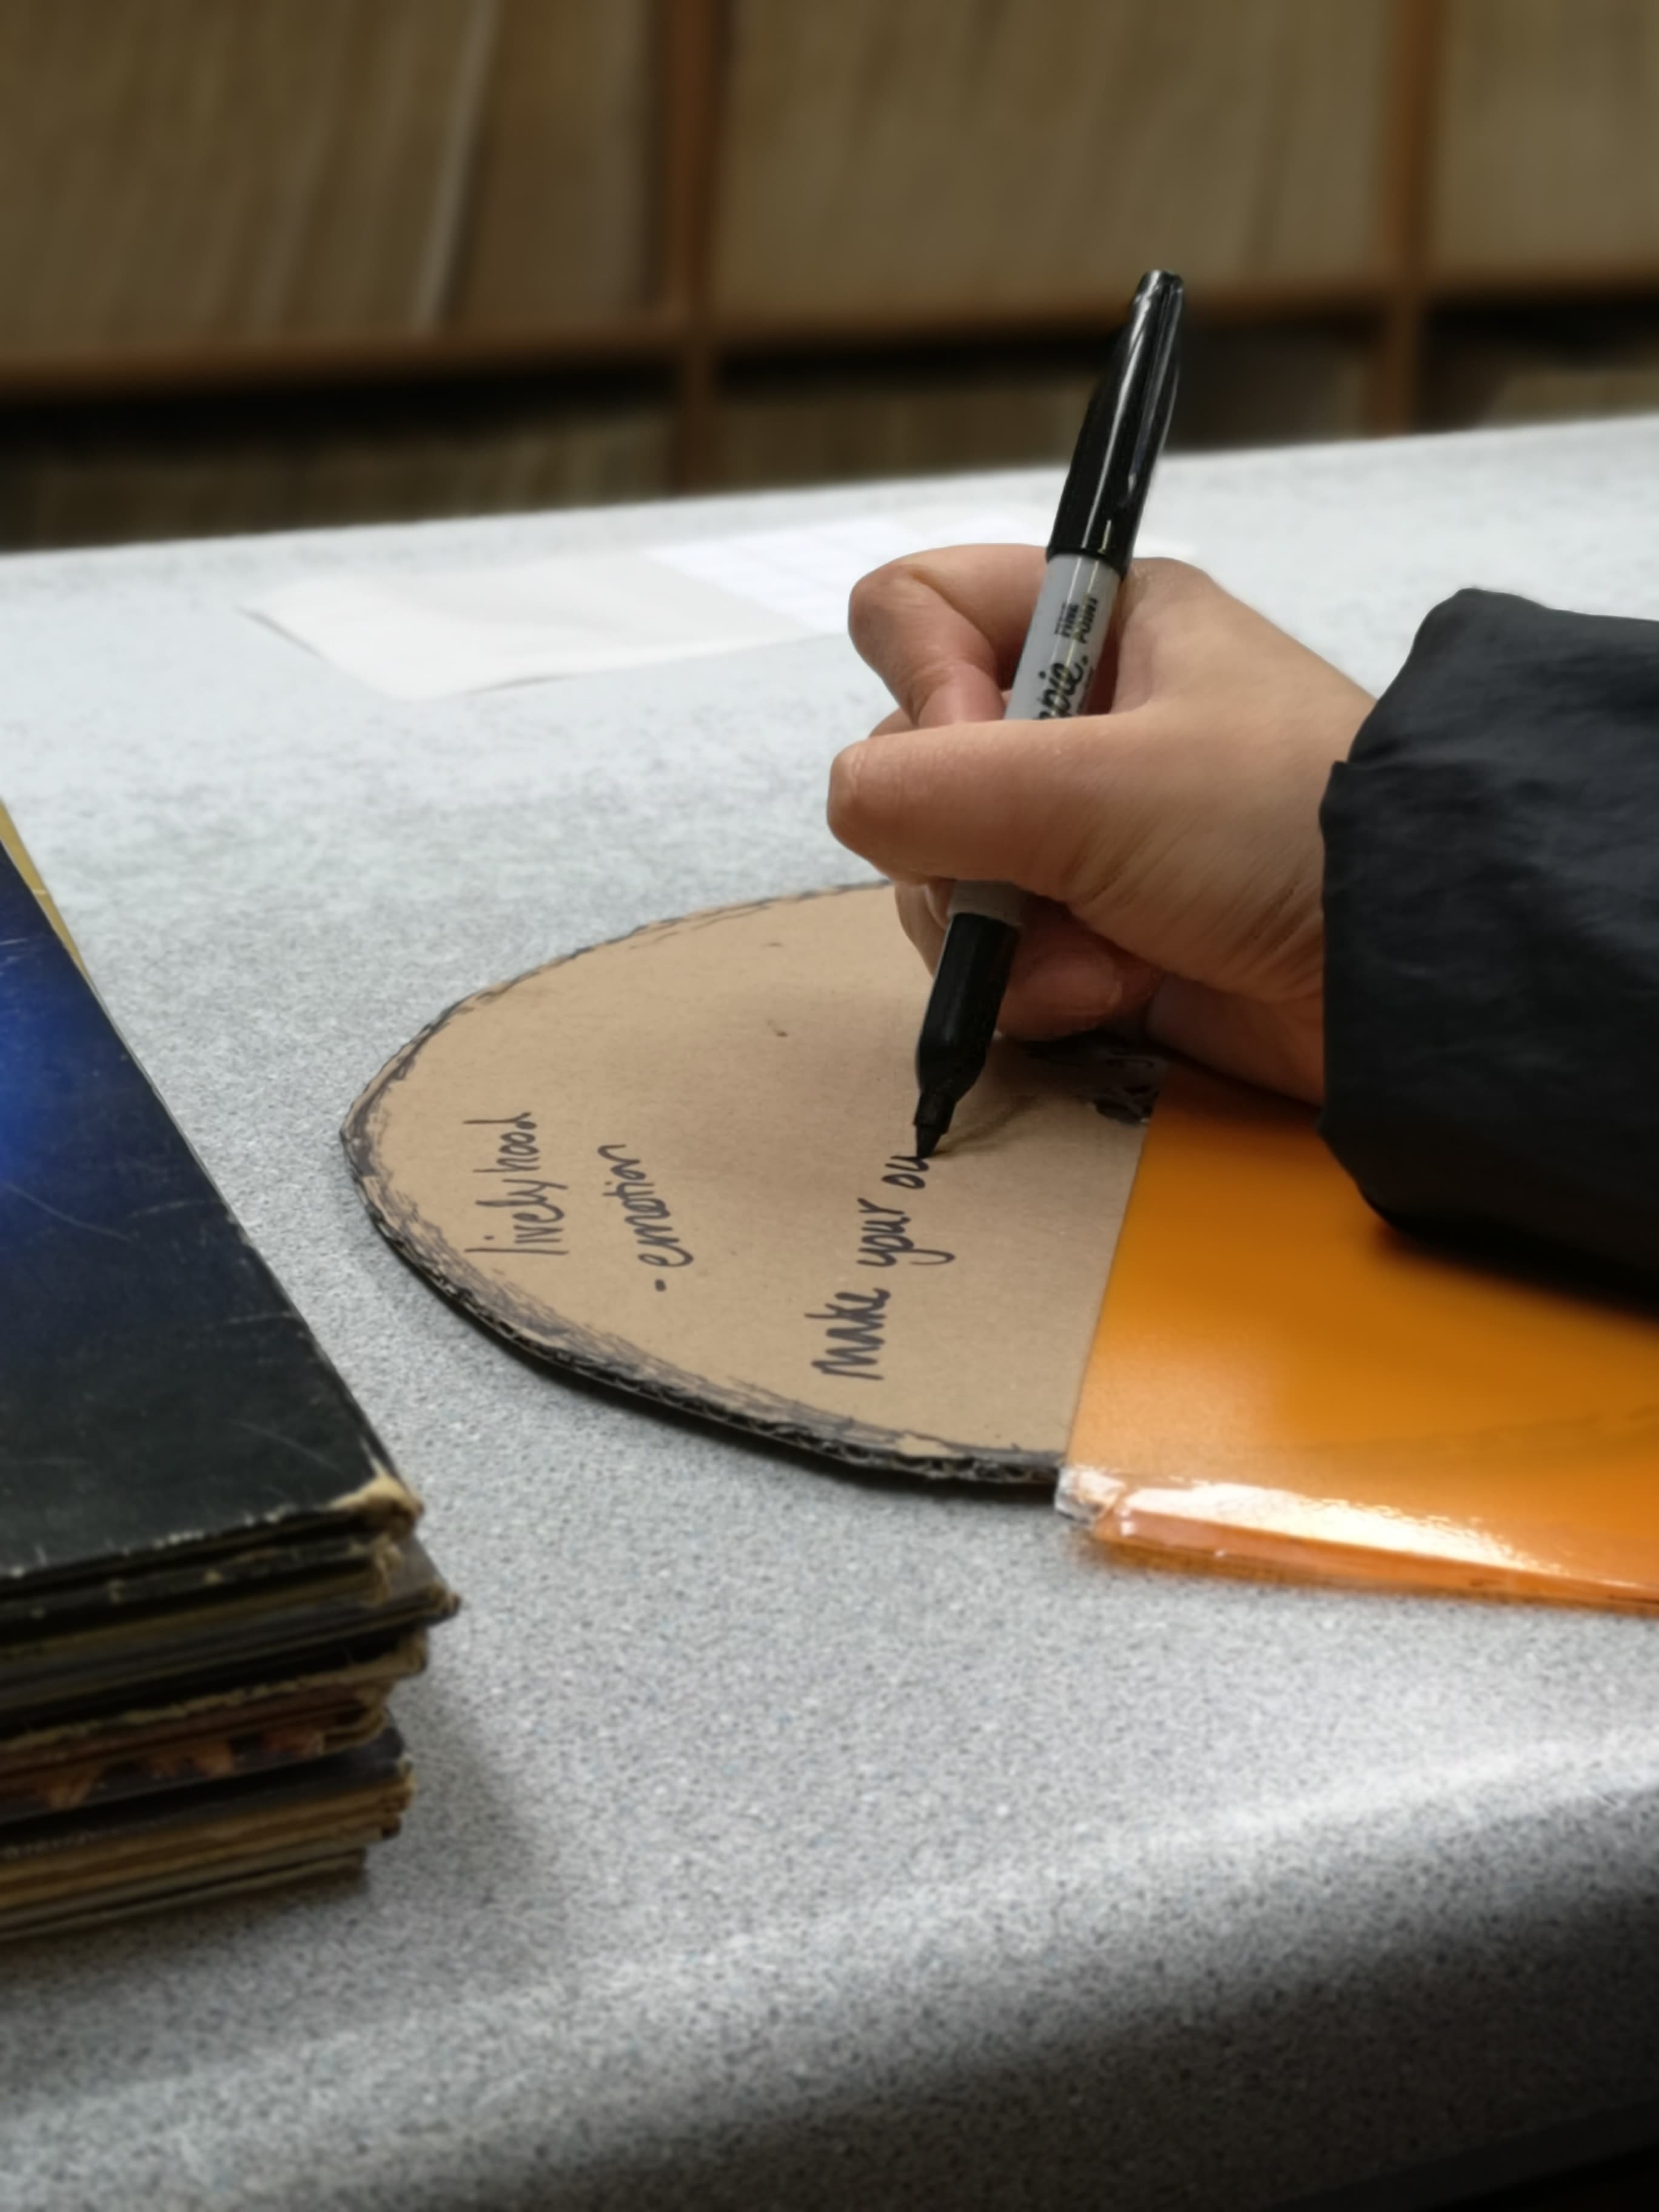 livelyhood
-emotion
make your ow
FINE
POINT